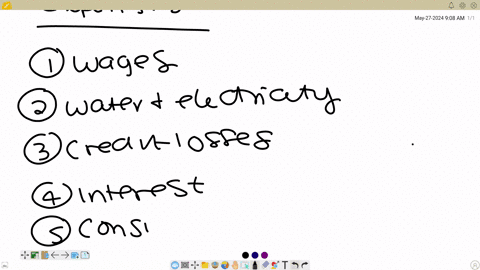 May-27-2024 9:08 AM 1/1
① wages
② water & electricity
③ credit losses
④ interest
⑤ consi